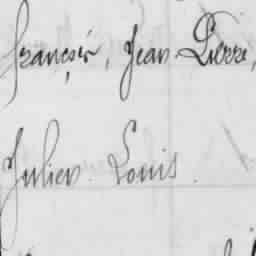 françois, Jean Pierre,
Julien Louis.